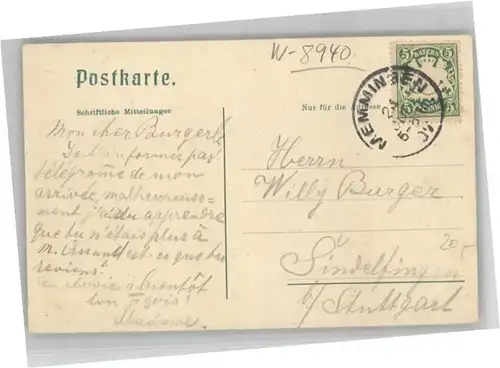 W-8940
5 BAYERN 5
MEMMINGEN
Postkarte.
Schriftliche Mitteilungen
Nur für die Adresse
Mon cher Burgerl
informer par
télégramme de mon
arrivée, malheureuse-
ment j'ai dû apprendre
que tu n'étais plus à
M. Quand est-ce que tu
reviens?
à bientôt
ton
Herrn
Willy Burger
20,-
Sindelfingen
b/Stuttgart